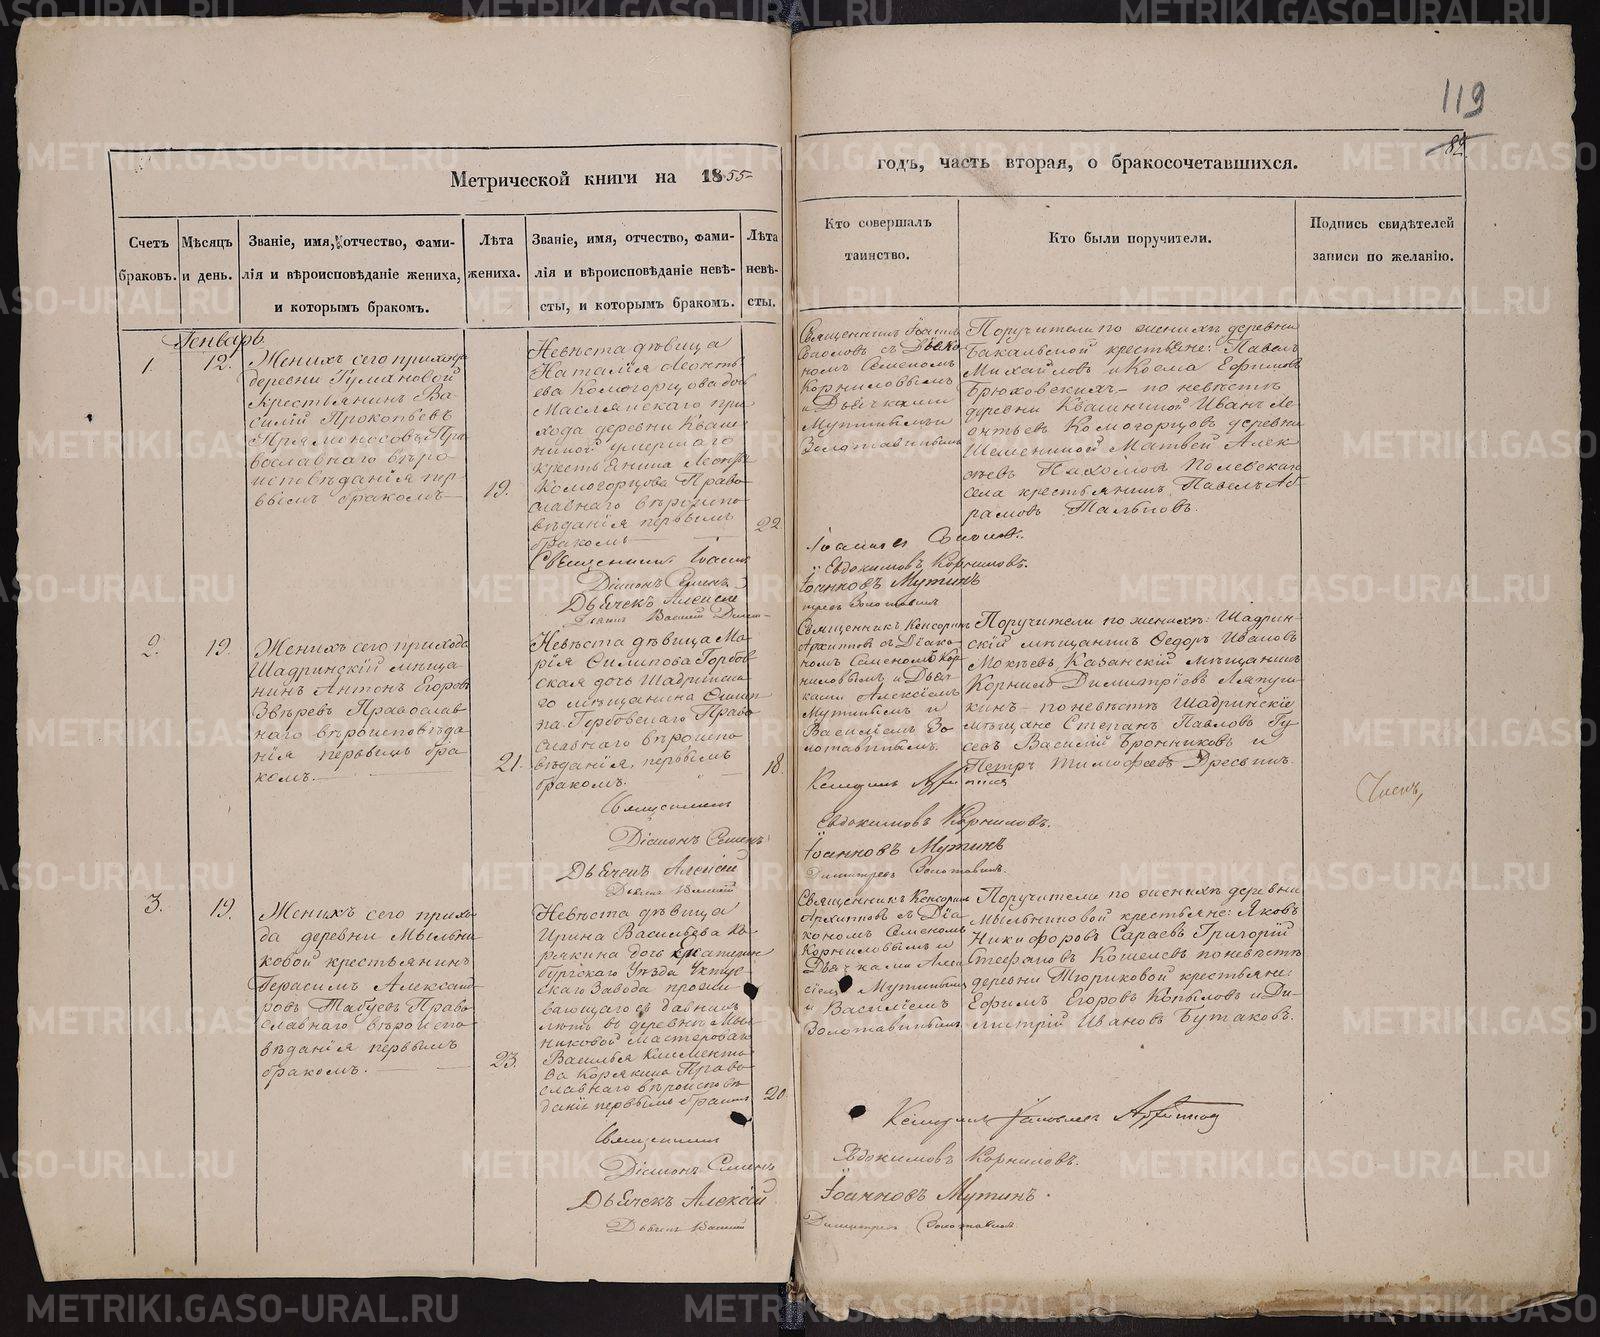 119
84
Метрической книги на 1855
годъ, часть вторая, о бракосочетавшихся.
Счетъ браковъ.
Мѣсяцъ и день.
Званіе, имя, отчество, фами-
лія и вѣроисповѣданіе жениха,
и которымъ бракомъ.
Лѣта
жениха.
Званіе, имя, отчество, фами-
лія и вѣроисповѣданіе невѣ-
сты, и которымъ бракомъ.
Лѣта
невѣ-
сты.
Кто совершалъ
таинство.
Кто были поручители.
Подпись свидѣтелей
записи по желанію.
Генварь
1.
12.
Женихъ сего прихода
деревни Тумановой
крестьянинъ Ва-
силій Прокопьевъ
Прямоносовъ Пра-
вославнаго вѣро
исповѣданія пер-
вымъ бракомъ
19.
Невѣста дѣвица
Наталія Леонть
ева Комогорцова дочь
Маслянскаго при
хода деревни Кваш-
ниной умершаго
крестьянина Леонтья
Комогорцова Право-
славнаго вѣроиспо-
вѣданія первымъ
бракомъ
22
Священникъ Іоаннъ
Діаконъ Семенъ
Дьячекъ Алексій
Священникъ Іоаннъ
съ Діако-
номъ Семеномъ
Корниловымъ
и Дьячками
Мутинымъ и
Золотавинымъ
Поручители по женихѣ деревни
Бакальской крестьяне: Павелъ
Михайловъ и Косма Ефимовъ
Брюховскихъ - по невѣстѣ
деревни Квашниной Иванъ Ле-
онтьевъ Комогорцовъ деревни
Шемениной Матвей Алек
сѣевъ Полевскаго
села крестьянинъ Павелъ Аб-
рамовъ
Евдокимовъ Корниловъ.
Іоанновъ Мутинъ
2.
19.
Женихъ сего прихода
Шадринскій мѣща-
нинъ Антонъ Егоровъ
Звѣревъ Православ
наго вѣроисповѣда
нія первымъ бра-
комъ.
21.
Невѣста дѣвица Ма-
рія Филипова Горбов
ская дочь Шадринска-
го мѣщанина Филип-
па Горбовскаго Право-
славнаго вѣроиспо-
вѣданія, первымъ
бракомъ.
18.
Священникъ
Діаконъ Семенъ
Дьячекъ Алексій
Дьячекъ Василій
Священникъ Кенсоринъ
Архиповъ съ Діако-
номъ Семеномъ Кор-
ниловымъ и Дьяч-
ками Алексіемъ
Мутинымъ и
Василіемъ Зо-
лотавинымъ.
Поручители по женихѣ: Шадрин-
скій мѣщанинъ Федоръ Ивановъ
Мокѣевъ, Казанскій мѣщанинъ
Корнилъ Димитріевъ Ляпуш-
кинъ - по невѣстѣ Шадринскіе
мѣщане Степанъ Павловъ Гу-
севъ Василій Бронниковъ и
Петръ Тимофеевъ Дресвинъ.
Евдокимовъ Корниловъ.
Іоанновъ Мутинъ
Димитріевъ Золотавинъ.
3.
19.
Женихъ сего прихо-
да деревни Мыльни-
ковой крестьянинъ
Герасимъ Александ-
ровъ Табуевъ Право-
славнаго вѣроиспо-
вѣданія первымъ
бракомъ.
23.
Невѣста дѣвица
Ирина Васильева Ко-
рякина дочь Екатерин
бургскаго Уѣзда Уктус
скаго Завода прожи
вающаго съ давнихъ
лѣтъ въ деревни Мыль-
никовой Мастероваго
Василья Климентье-
ва Корякина Право-
славнаго вѣроисповѣ
данія первымъ бракомъ
20
Священникъ
Діаконъ Семенъ
Дьячекъ Алексій
Дьячекъ Василій
Священникъ Кенсоринъ
Архиповъ съ Діа
кономъ Семеномъ
Корниловымъ и
Дьячками Алек
сіемъ Мутинымъ
и Василіемъ
Золотавинымъ
Поручители по женихѣ деревни
Мыльниковой крестьяне: Яковъ
Никифоровъ Сараевъ Григорій
Стефановъ Кошелевъ по невѣстѣ
деревни Тюриковой крестьяне:
Ефимъ Егоровъ Копыловъ и Ди-
митрій Ивановъ Бутаковъ.
Евдокимовъ Корниловъ.
Іоанновъ Мутинъ.
Димитріевъ Золотавинъ
METRIKI.GASO-URAL.RU